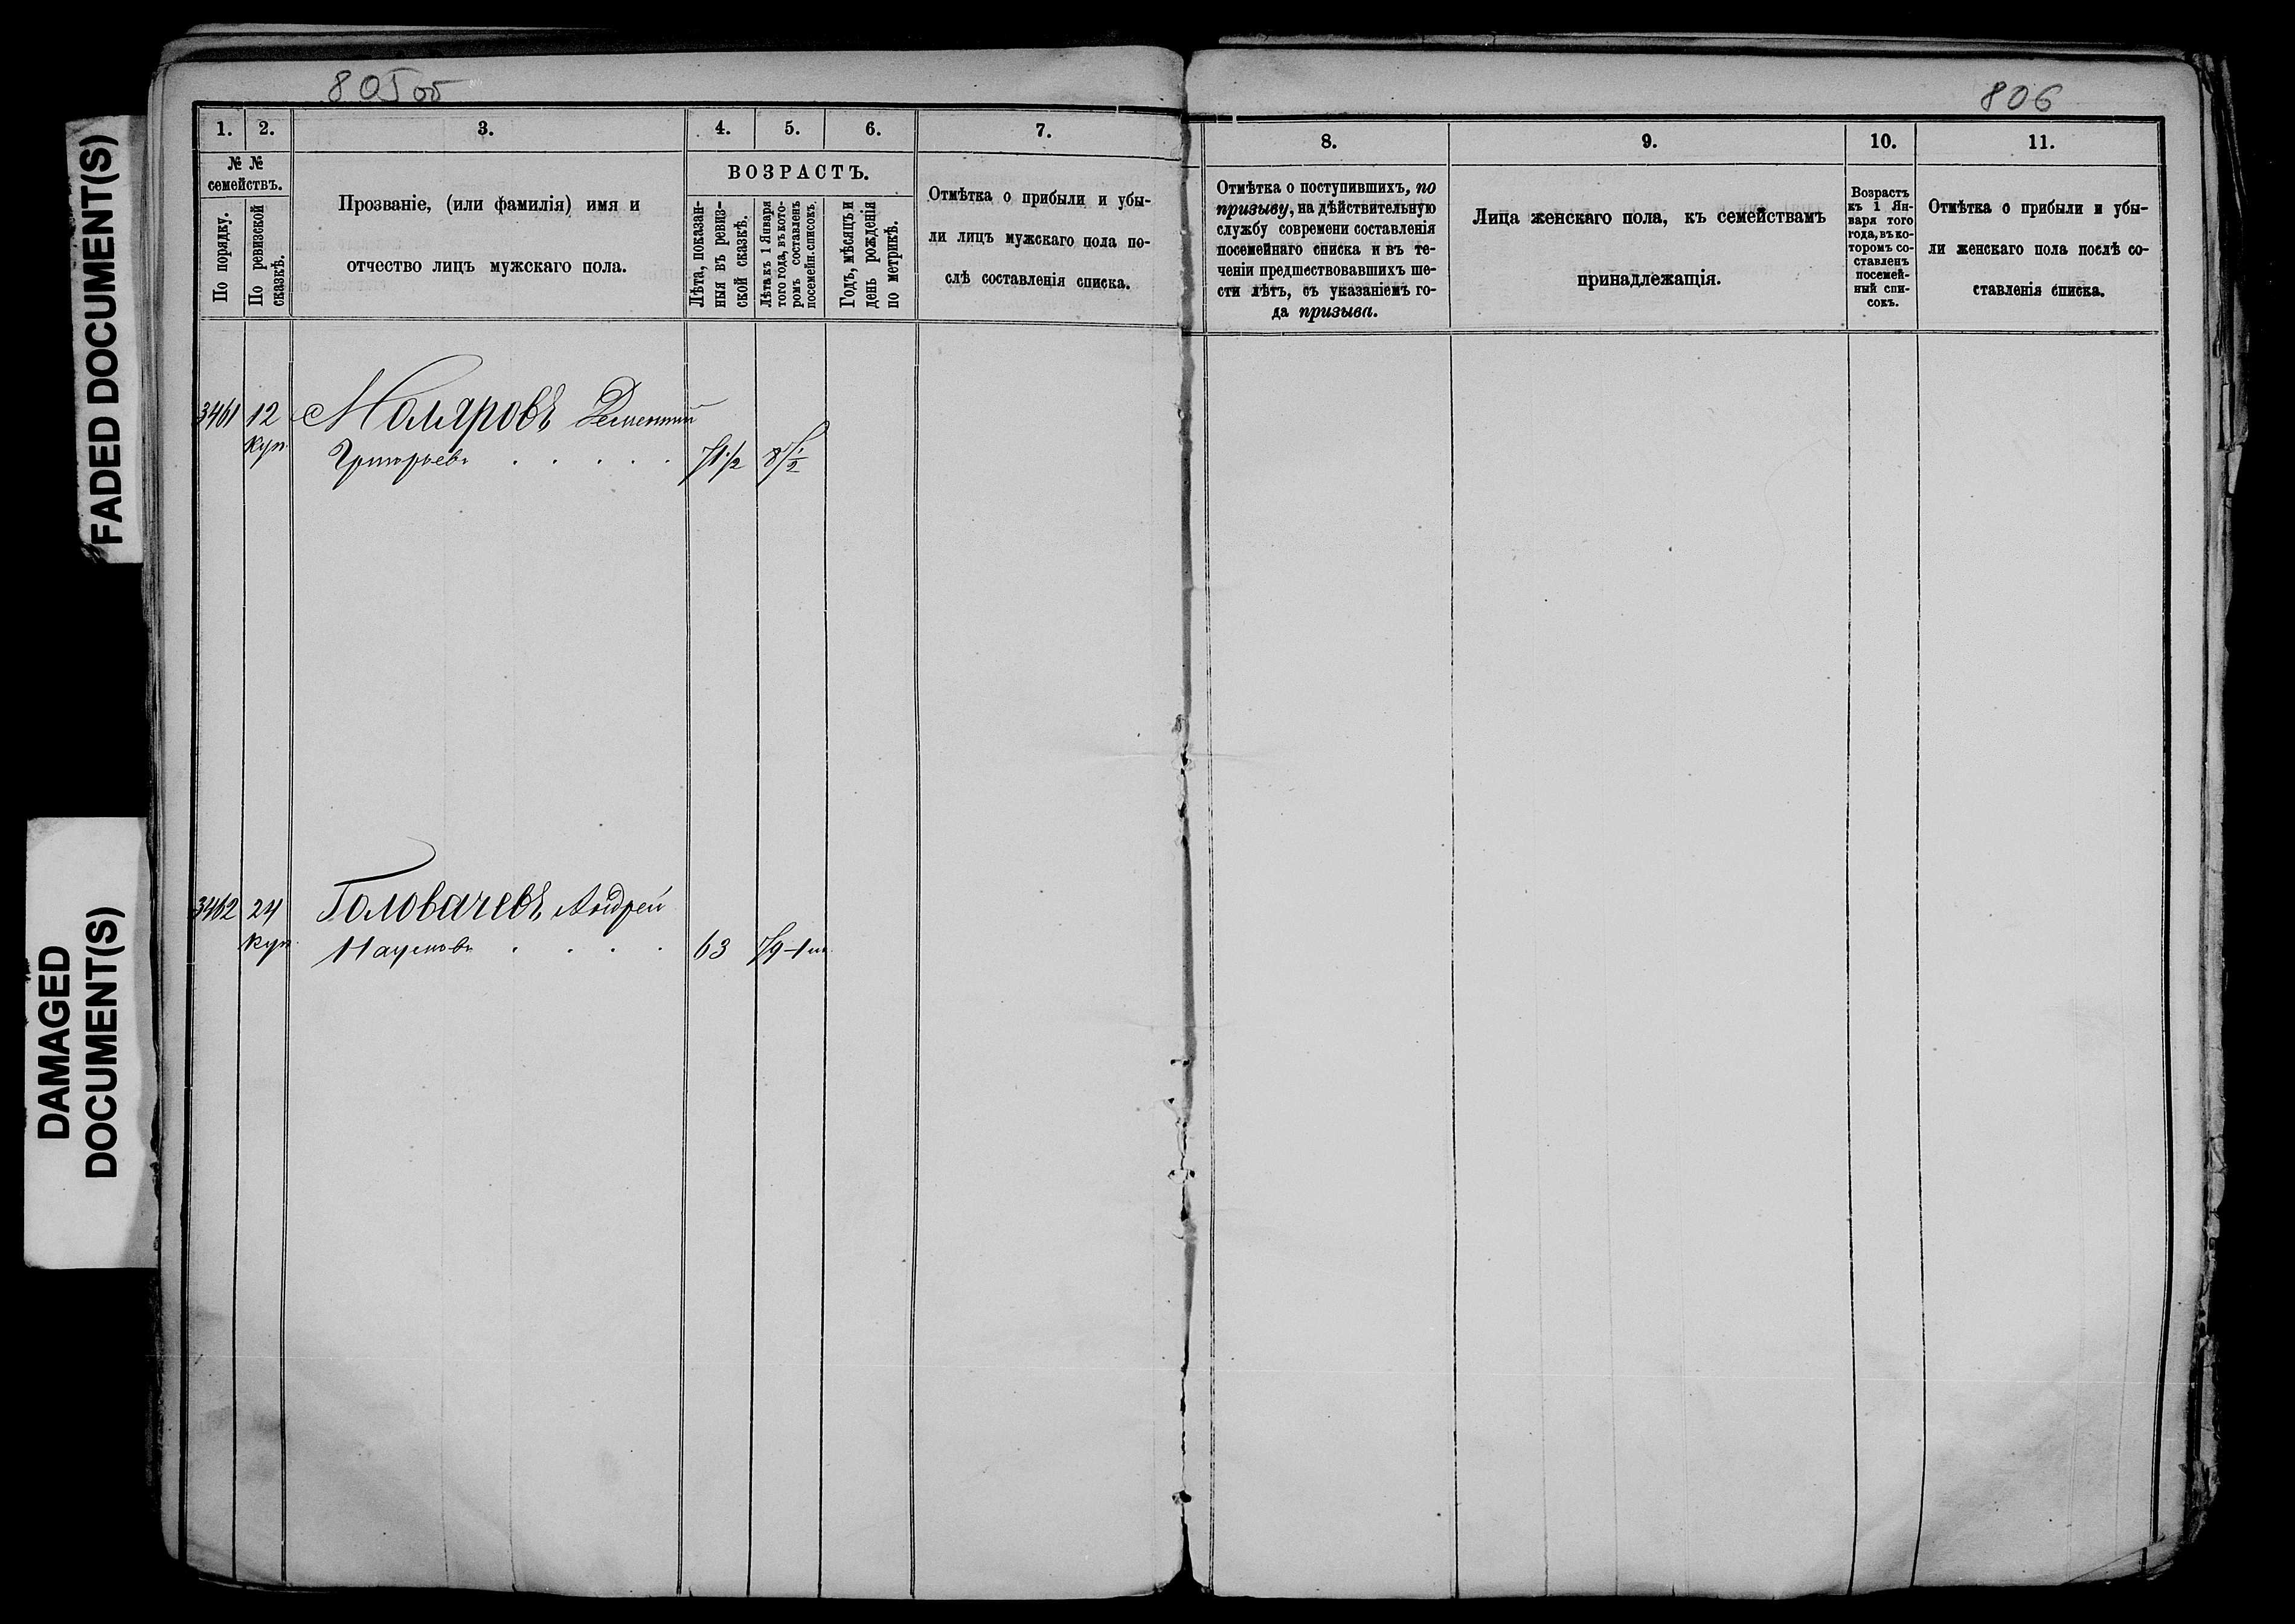 FADED DOCUMENT(S)
DAMAGED
DOCUMENT(S)
805 об
806
1. 2. 3. 4. 5. 6. 7.
№ №
семействъ.
По порядку.
По ревизской
сказкѣ.
Прозваніе, (или фамилія) имя и
отчество лицъ мужскаго пола.
ВОЗРАСТЪ.
Лѣта, показан-
ныя въ ревиз-
ской сказкѣ.
Лѣта къ 1 Января
того года, въ кото-
ромъ составленъ
посемейн. списокъ.
Годъ, мѣсяцъ и
день рожденія
по метрикѣ.
Отмѣтка о прибыли и убы-
ли лицъ мужскаго пола по-
слѣ составленія списка.
8. 9. 10. 11.
Отмѣтка о поступившихъ, по
призыву, на дѣйствительную
службу современи составленія
посемейнаго списка и въ те-
ченіи предшествовавшихъ ше-
сти лѣтъ, съ указаніемъ го-
да призыва.
Лица женскаго пола, къ семействамъ
принадлежащія.
Возрастъ
къ 1 Ян-
варя того
года, въ ко-
торомъ со-
ставленъ
посемей-
ный спи-
сокъ.
Отмѣтка о прибыли и убы-
ли женскаго пола послѣ со-
ставленія списка.
3461 12 Моляровъ Дементий
куп. Григорьевъ . . . . . 71 1/2
3462 24 Головачевъ Андрей
куп. Наумовъ . . . . 63